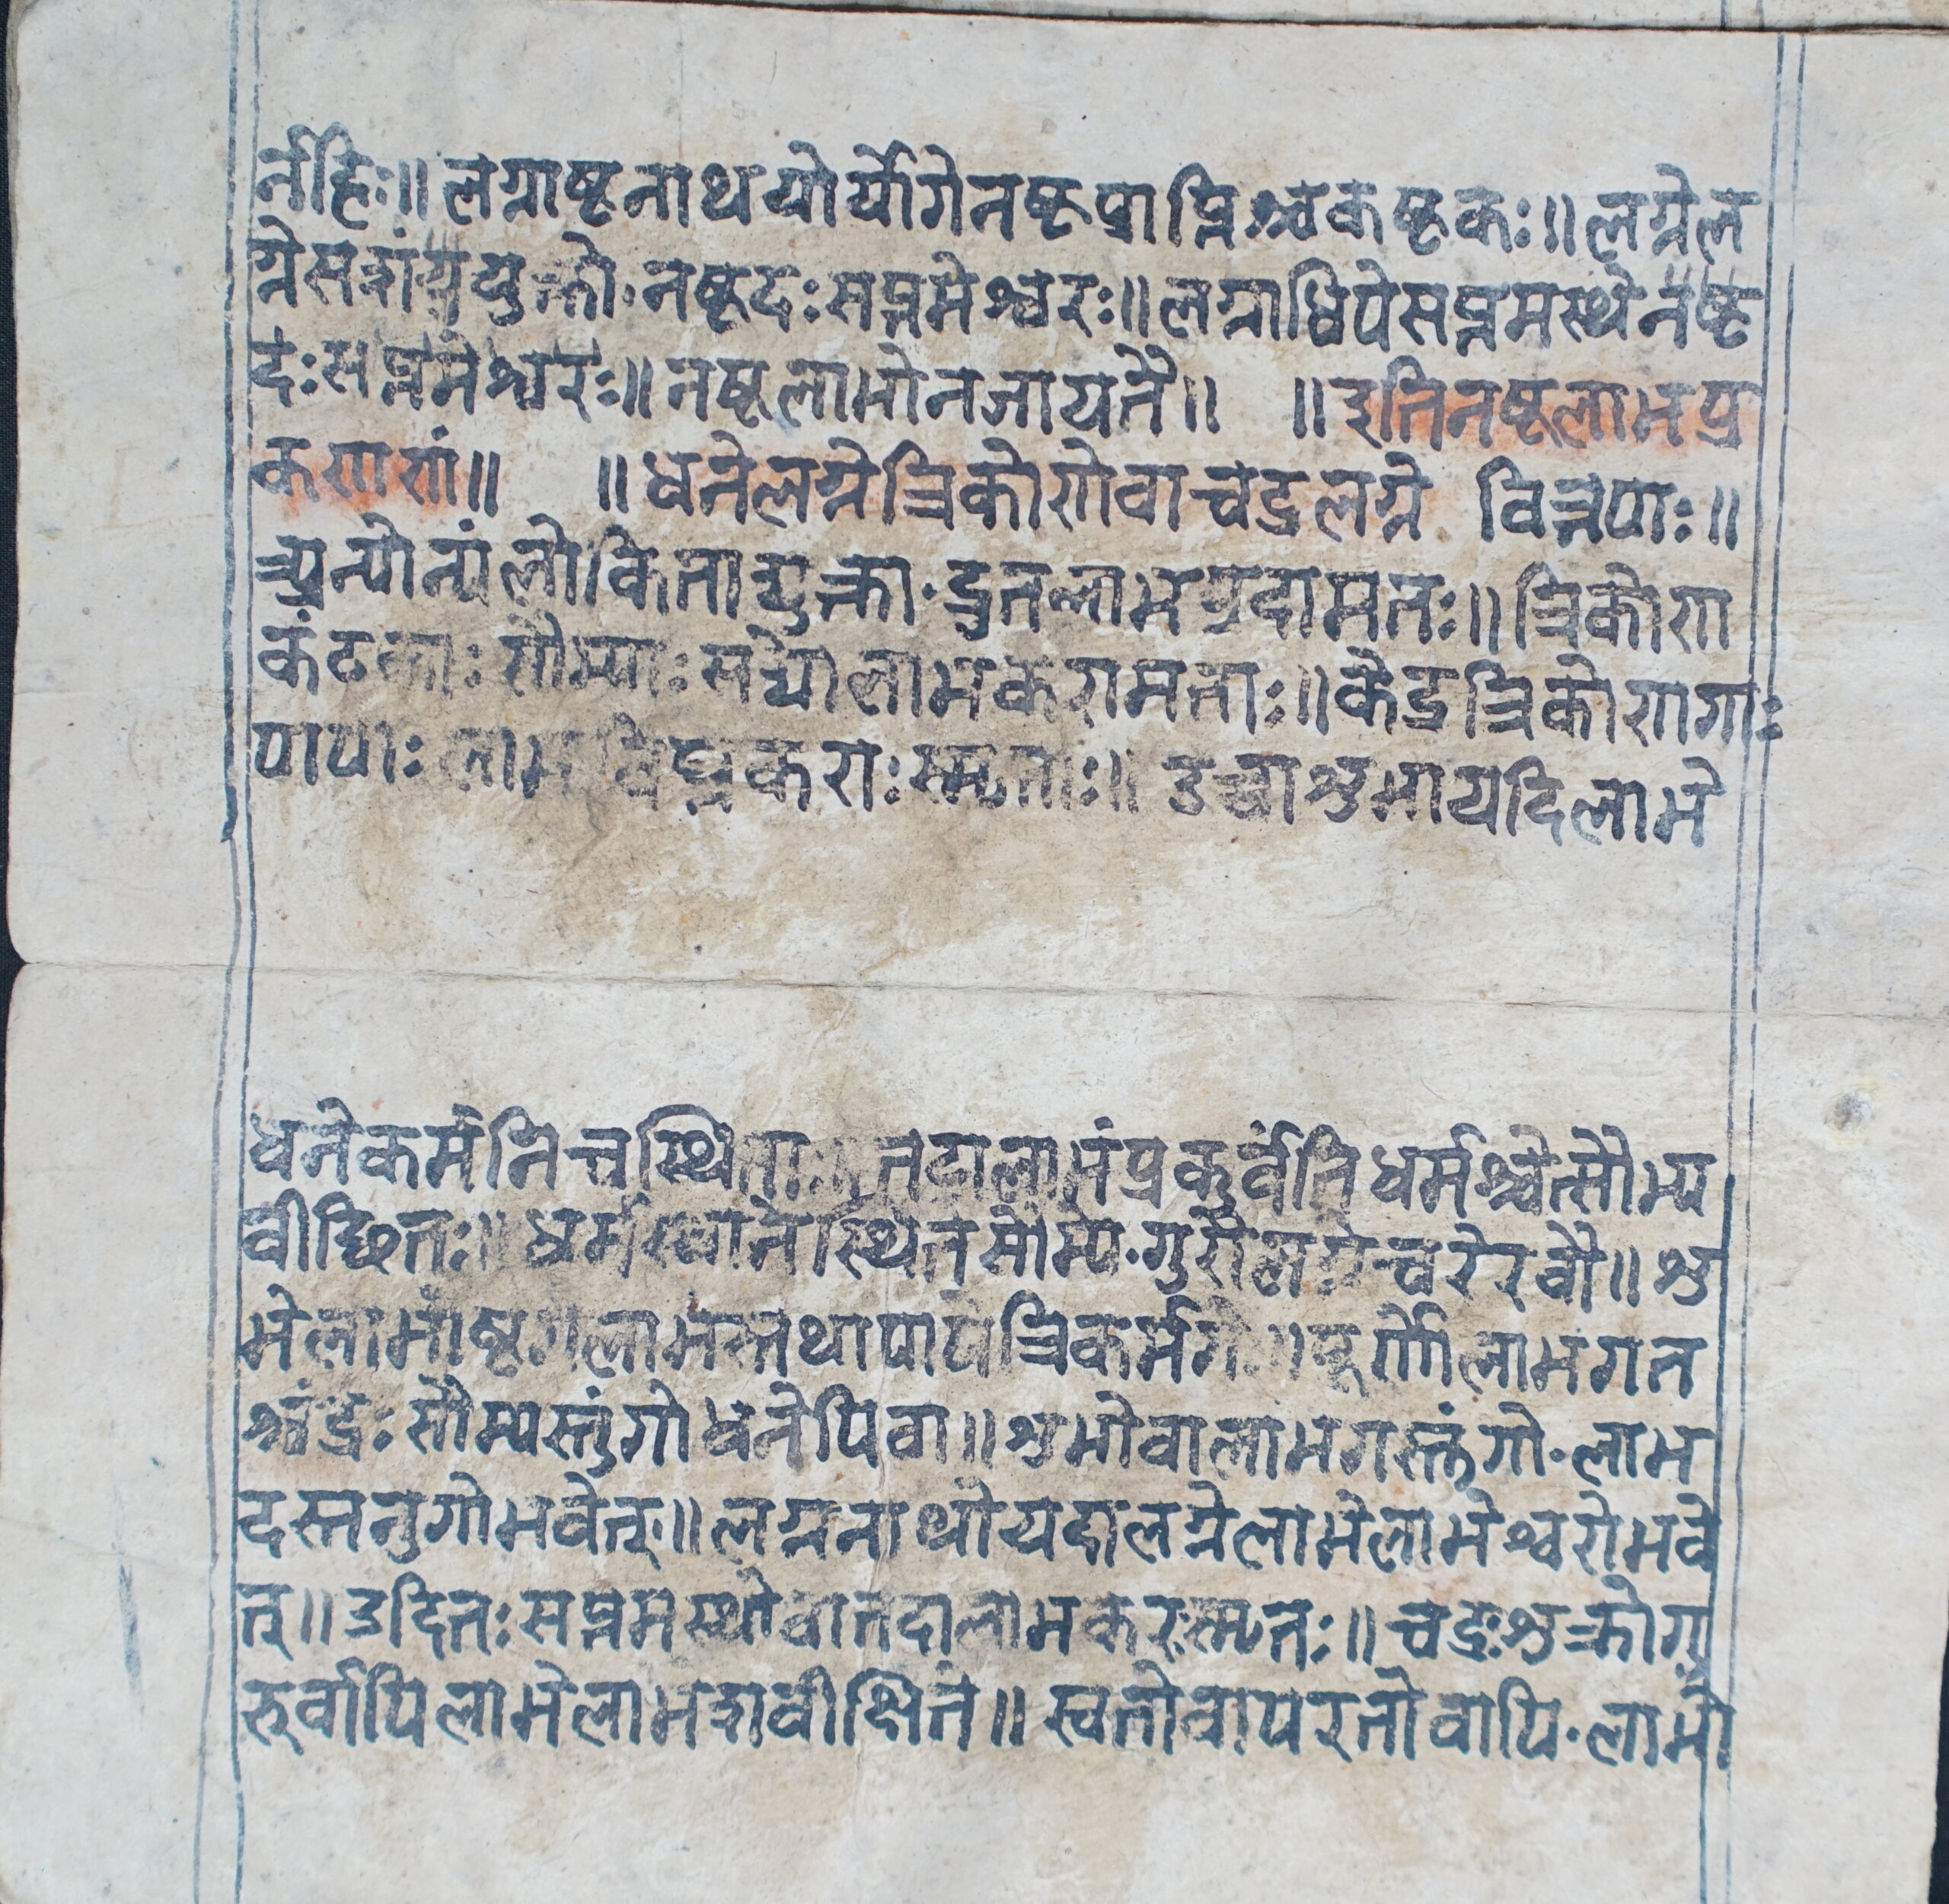 र्नहिः॥ लग्नाष्टनाथयोर्योगेनष्टप्राप्तिश्चकष्टकः॥ लग्नेल
ग्नेसत्रांययुक्तो नष्टदः सप्तमेश्वरः॥ लग्नाधिपेसप्तमस्थेनष्ट
दः सप्तमेश्वरः॥ नष्टलाभोनजायतै॥ ॥ इतिनष्टलाभप्र
कराणं॥ ॥ धनेलग्नेत्रिकोणेवाचद्रलग्ने वित्तपाः॥
अन्योन्यंलोकितायुक्ता द्रुतलाभप्रदामतः॥ त्रिकोण
कंटकाः सौम्याः सद्योलाभकरामताः॥ केद्रत्रिकोणगाः
पापाः लाभविघ्नकराःस्मृताः॥ उच्चाशुभायदिलाभे
धनेकर्मनिचस्थिताः॥ तदालाभंप्रकुर्वंतिधर्मश्चेत्सौम्य
वीछितः॥ धर्मस्थानेस्थितसौम्य गुरौलग्नेचरेरवौ॥ शु
भेलाभाष्ट॥ लाभस्तथापापेत्रिकर्मगे॥ पूर्णोलाभगत
श्चंद्रः सौम्यस्तुंगोधनेपिवा॥ शुभोवालाभगस्तुंगो लाभ
दस्तनुगोभवेत्॥ लग्ननाथोयदालग्नेलाभेलाभेश्वरोभवे
त्॥ उदितः सप्तमस्थोवातदालाभकरस्मृतः॥ चद्रःशुक्रोगु
रुर्वापिलाभेलाभदावीक्षितं॥ स्वतोवापरतोवापि लाभो